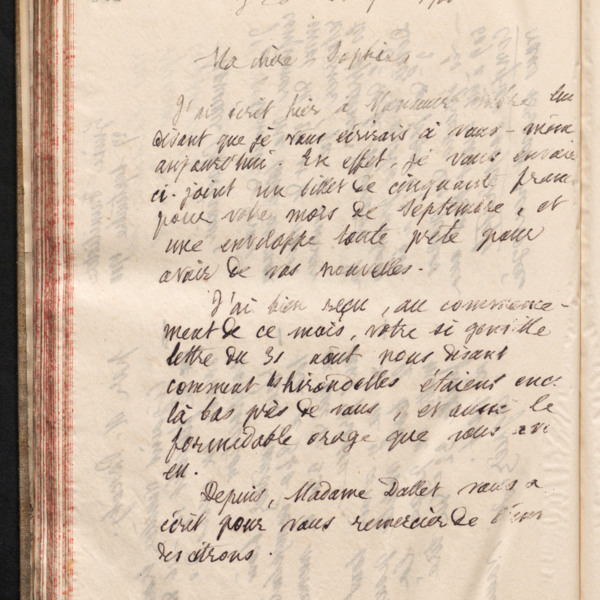 Ma chère Sophie,
J'ai écrit hier à Monsieur lui
disant que je vous écrirais à vous-même
aujourd'hui. En effet, je vous envoie
ci-joint un billet de cinquante francs
pour votre mois de Septembre, et
une enveloppe toute prête pour
avoir de vos nouvelles.
J'ai bien reçu, au commence-
ment de ce mois, votre si gentille
lettre du 31 août nous disant
comment les hirondelles étaient enc
là bas près de vous, et aussi le
formidable orage que vous avi
eu.
Depuis, Madame Dallet vous a
écrit pour vous remercier de
des citrons.